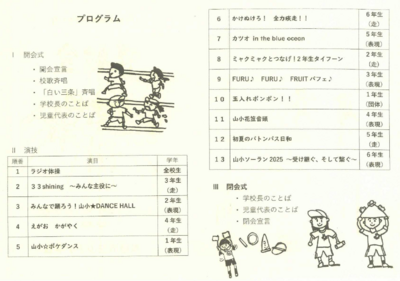 プログラム
Ⅰ 開会式
・開会宣言
・校歌斉唱
・「白い三条」斉唱
・学校長のことば
・児童代表のことば
Ⅱ 演技
順番 演目 学年
1 ラジオ体操 全校生
2 33shining ～みんな主役に～ 3年生（走）
3 みんなで踊ろう！山小★DANCE HALL 2年生（表現）
4 えがお かがやく 4年生（走）
5 山小☆ポケダンス 1年生（表現）
6 かけぬけろ！ 全力疾走！！ 6年生（走）
7 カツオ in the blue ocean 5年生（表現）
8 ミャクミャクとつなげ！2年生タイフーン 2年生（走）
9 FURU♪ FURU♪ FRUITパフェ♪ 3年生（表現）
10 玉入れポンポン！！ 1年生（団体）
11 山小花笠音頭 4年生（表現）
12 初夏のバトンパス日和 5年生（走）
13 山小ソーラン2025 ～受け継ぐ、そして繋ぐ～ 6年生（表現）
Ⅲ 閉会式
・学校長のことば
・児童代表のことば
・閉会宣言